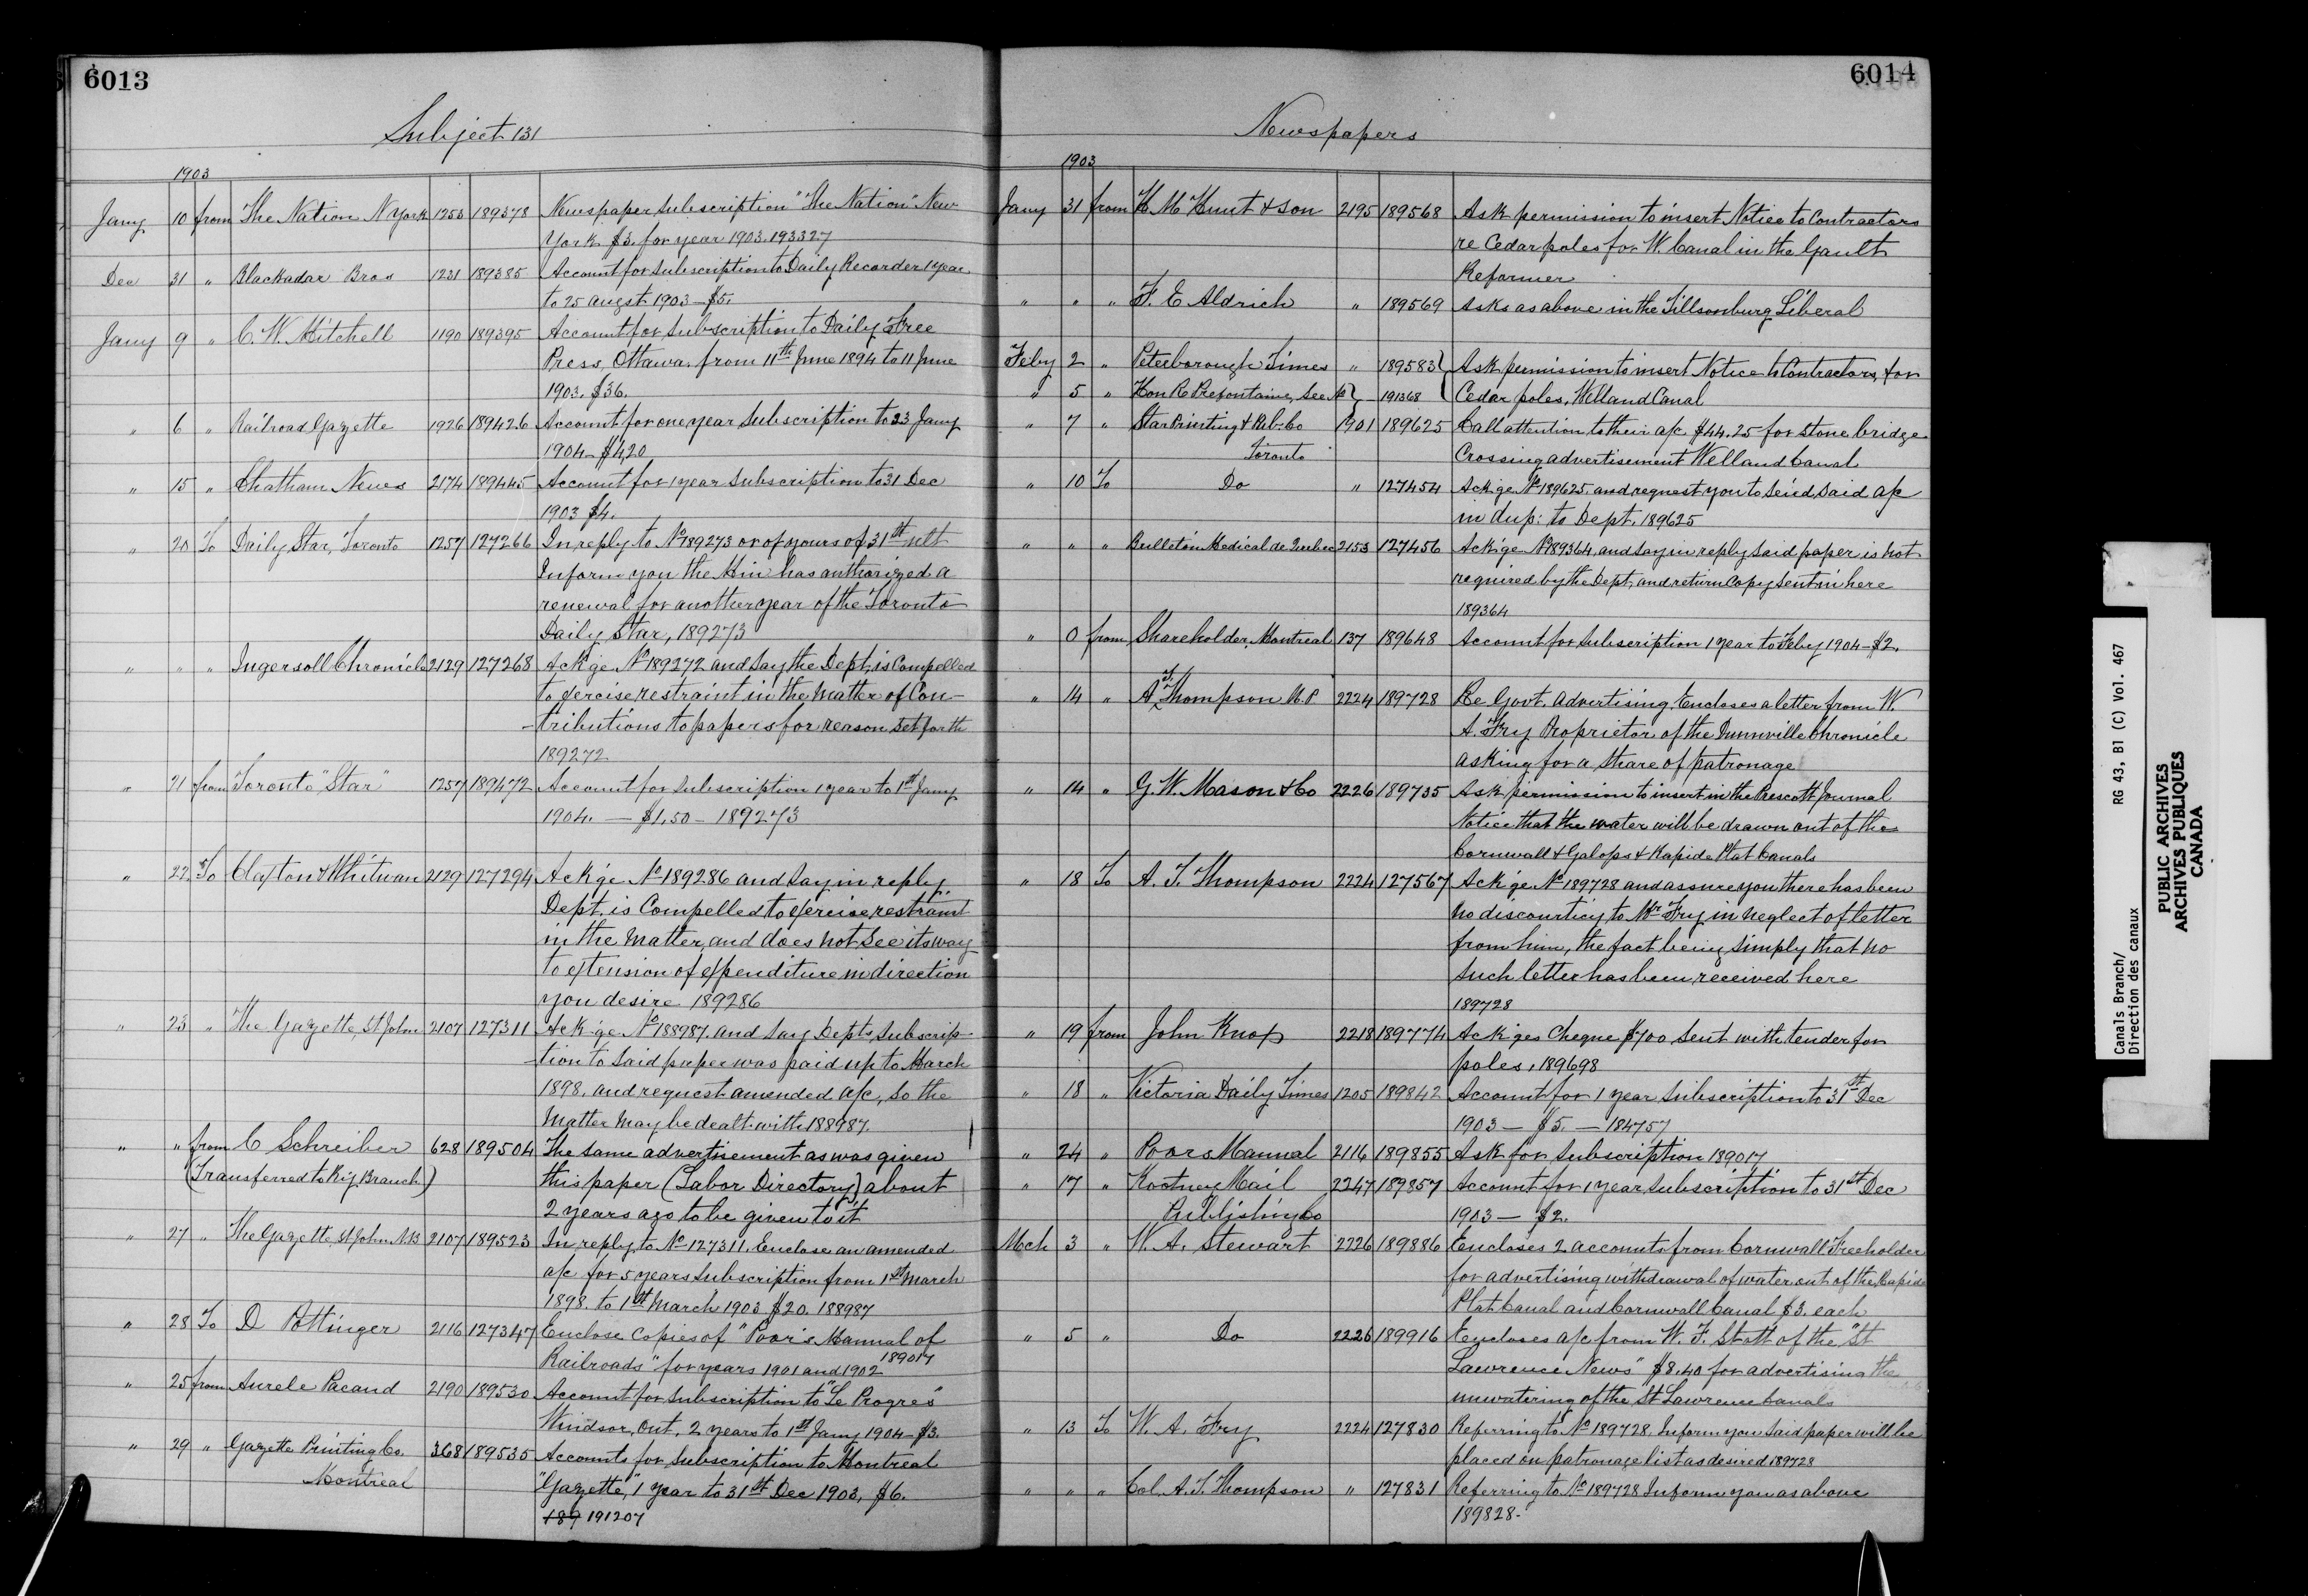 6013
Subject 131
1903
Jany 10 from The Nation N York 1253 189378 Newspaper subscription "The Nation" New
York $3. for year 1903. 193327
Dec 31 " Blackadar Bros 1231 189385 Account for subscription to Daily Recorder 1 year
to 25 augst 1903 - $5.
Jany 9 " C. W. Mitchell 1190 189395 Account for subscription to Daily Free
Press, Ottawa, from 11th June 1894 to 11 June
1903. $36.
" 6 " Railroad Gazette 1926 189426 Account for one year subscription to 23 Jany
1904 - $4,20
" 15 " Chatham News 2174 189445 Account for 1 year subscription to 31 Dec
1903 $4.
" 20 To Daily Star, Toronto 1257 127266 In reply to No 189273 or of yours of 31th ult
Inform you the Min has authorized a
renewal for another year of the Toronto
Daily Star, 189273
" " " Ingersoll Chronicle 2129 127268 Ack'ge No 189272 and say the Dept, is Compelled
to exercise restraint in the matter of Con-
-tributions to papers for reason set forth
189272
" 21 from Toronto "Star" 1257 189472 Account for subscription 1 year to 1st Jany
1904. — $1,50 - 189273
" 22 To Claxton & Whitman 2129 127294 Ack'ge No 189286 and say in reply,
Dept. is Compelled to exercise restraint
in the matter, and does not see its way
to extension of expenditure in direction
you desire 189286
" 23 " The Gazette, St John 2107 127311 Ack'ge No 188987. and say Depts, subscrip
-tion to said paper was paid up to March
1898. and request amended a/c, so the
matter may be dealt with 188987.
" " from C Schreiber 628 189504 The same advertisement as was given
(Transferred to Ry. Branch) this paper (Labor Directory) about
2 years ago to be given to it
" 27 " The Gazette, St John N.B 2107 189523 In reply to No 127311. Enclose an amended
a/c for 5 years subscription from 1st March
1898. to 1st March 1903 $20. 188987
" 28 To D Pottinger 2116 127347 Enclose copies of "Poor's Manual of
Railroads" for years 1901 and 1902 189017
" 25 from Aurele Pacaud 2190 189530 Account for subscription to "Le Progres"
Windsor, Ont. 2 years to 1st Jany 1904 - $3.
" 29 " Gazette Printing Co. 368 189535 Accounts for subscription to Montreal
Montreal "Gazette," 1 year to 31st Dec 1903, $6.
189 191207
6014
Newspapers
1903
Jany 31 from H. M. Hunt & Son 2195 189568 Ask permission to insert Notice to Contractors
re Cedar poles for W. Canal in the Gault
Reformer
" " " F. E Aldrich " 189569 Asks as above in the Tillsonburg Liberal
Feby 2 " Peterborough Times " 189583 Ask permission to insert Notice to Contractors, for
" 5 " Hon R Prefontaine, see No 191368 Cedar poles, Welland Canal
" 7 " Star Printing & Pub. Co 1901 189625 Call attention to their a/c $44.25 for stone bridge
Toronto Crossing advertisement Welland Canal
" 10 To Do " 127454 Ack'ge No 189625, and request you to send said a/c
in dup: to Dept. 189625
" " " Bulletin Medical de Quebec 2153 127456 Ack'ge No 189364, and say in reply said paper is not
required by the Dept, and return copy sent in here
189364
" 0 from Shareholder, Montreal 137 189648 Account for subscription 1 year to Feby 1904 - $2.
" 14 " A. T. Thompson M.P 2224 189728 Re Govt. advertising, Encloses a letter from W.
A. Fry Proprietor of the Dunnville Chronicle
asking for a share of patronage
" 14 " G. W. Mason & Co 2226 189735 Ask permission to insert in the Prescott Journal
Notice that the water will be drawn out of the
Cornwall & Galops & Rapide Plat Canals
" 18 To A. T. Thompson 2224 127567 Ack'ge No 189728 and assure you there has been
no discourticy to Mr Fry in neglect of letter
from him, the fact being simply that no
such letter has been received here
189728
" 19 from John Knox 2218 189774 Ack'ges Cheque $700 sent with tender for
poles, 189698
" 18 " Victoria Daily Times 1205 189842 Account for 1 year subscription to 31st Dec
1903 — $5. — 184757
" 24 " Poors Manual 2116 189855 Ask for subscription 189017
" 17 " Kootney Mail 2247 189857 Account for 1 year, subscription to 31st Dec
Publishing Co 1903 — $2.
Mch 3 " W. A. Stewart 2226 189886 Encloses 2 accounts from Cornwall Freeholder
for advertising withdrawal of water out of the Rapide
Plat Canal and Cornwall Canal $3. each
" 5 " Do 2226 189916 Encloses a/c from W. F. Stott of the "St
Lawrence News" $8.40 for advertising the
unwatering of the St Lawrence Canals
" 13 To W. A. Fry 2224 127830 Referring to No 189728. Inform you said paper will be
placed on patronage list as desired 189728
" " " Col. A. T. Thompson " 127831 Referring to No 189728 Inform you as above
189828.
Canals Branch/
Direction des canaux
RG 43, B1 (C) Vol. 467
PUBLIC ARCHIVES
ARCHIVES PUBLIQUES
CANADA